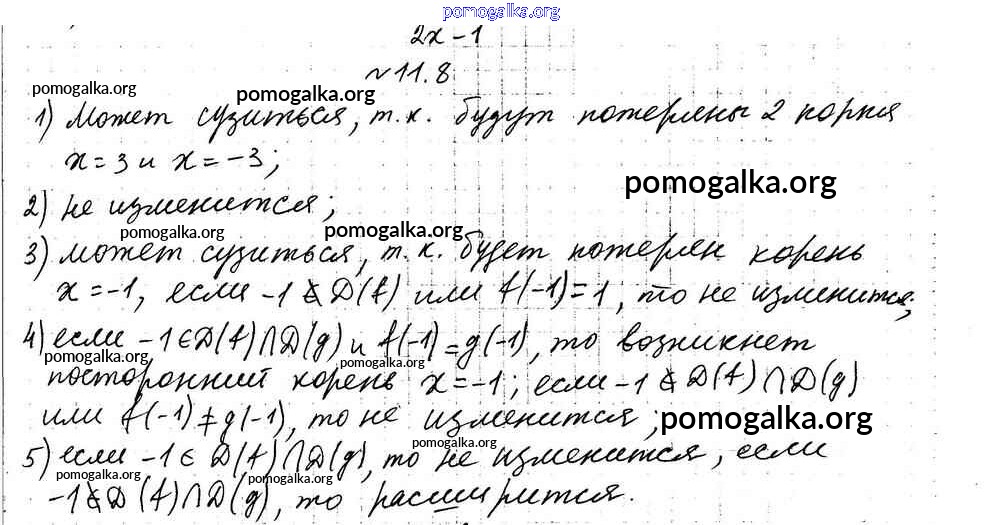 pomogalka.org
2x-1
N11.8
pomogalka.org
pomogalka.org
1) Может сузиться, т.к. будут потеряны 2 корня
x=3 и x=-3;
pomogalka.org
2) не изменится;
pomogalka.org
pomogalka.org
3) может сузиться, т.к. будет потерян корень
x=-1, если -1 ∉ D(f) или f(-1)=1, то не изменится;
4) если -1 ∈ D(f)∩D(g) и f(-1)=g(-1), то возникнет
pomogalka.org
посторонний корень x=-1; если -1 ∉ D(f)∩D(g)
или f(-1)≠g(-1), то не изменится;
pomogalka.org
pomogalka.org
5) если -1 ∈ D(f)∩D(g), то не изменится, если
pomogalka.org
-1 ∉ D(f)∩D(g), то расширится.